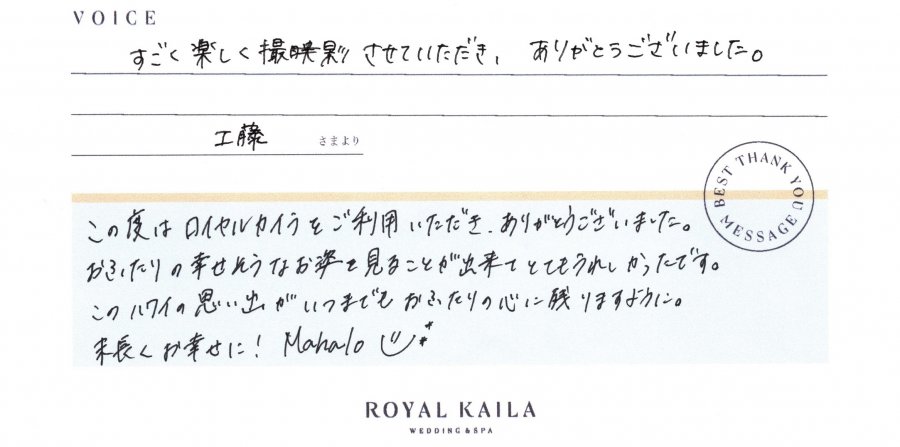 VOICE
すごく楽しく撮映影させていただき、ありがとうございました。
工藤 さまより
BEST THANK YOU MESSAGE
この度はロイヤルカイラをご利用いただき、ありがとうございました。
おふたりの幸せそうなお姿を見ることが出来てとてもうれしかったです。
このハワイの思い出がいつまでもおふたりの心に残りますように。
末長くお幸せに! Mahalo
ROYAL KAILA
WEDDING & SPA